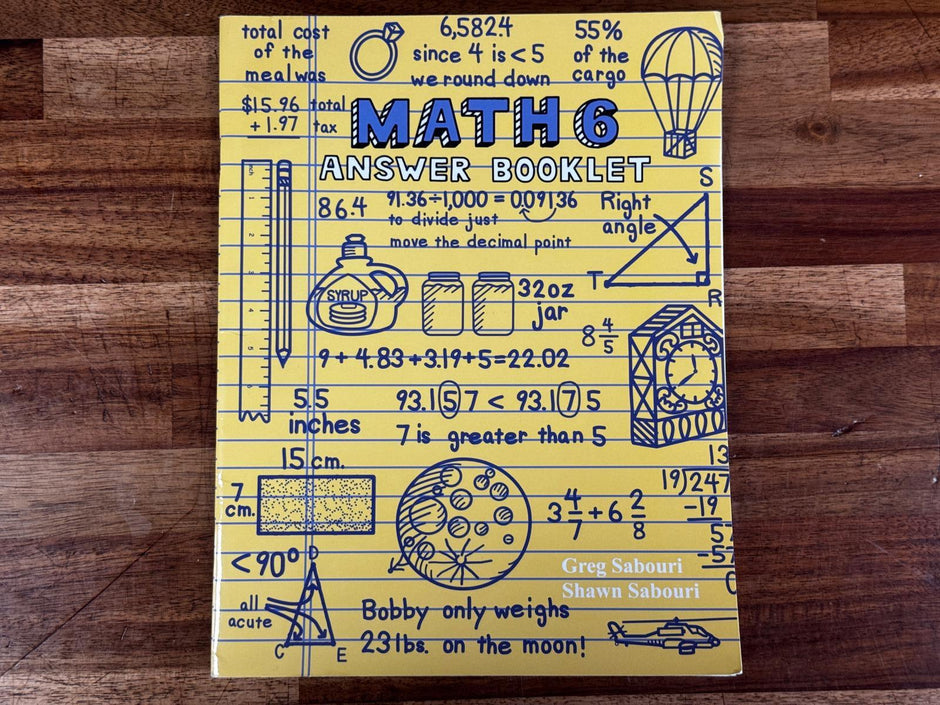 total cost
of the
meal was
6,582.4
since 4 is < 5
we round down
55%
of the
cargo
$15.96 total
+ 1.97 tax
MATH 6
ANSWER BOOKLET
86.4
91.36 ÷ 1,000 = 0.09136
to divide just
move the decimal point
Right
angle
S
T
R
SYRUP
32oz
jar
8 4/5
9 + 4.83 + 3.19 + 5 = 22.02
5.5
inches
93.157 < 93.175
7 is greater than 5
15 cm.
7
cm.
3 4/7 + 6 2/8
13
19)247
-19
57
-57
0
<90°
D
all
acute
C
E
Greg Sabouri
Shawn Sabouri
Bobby only weighs
23 lbs. on the moon!